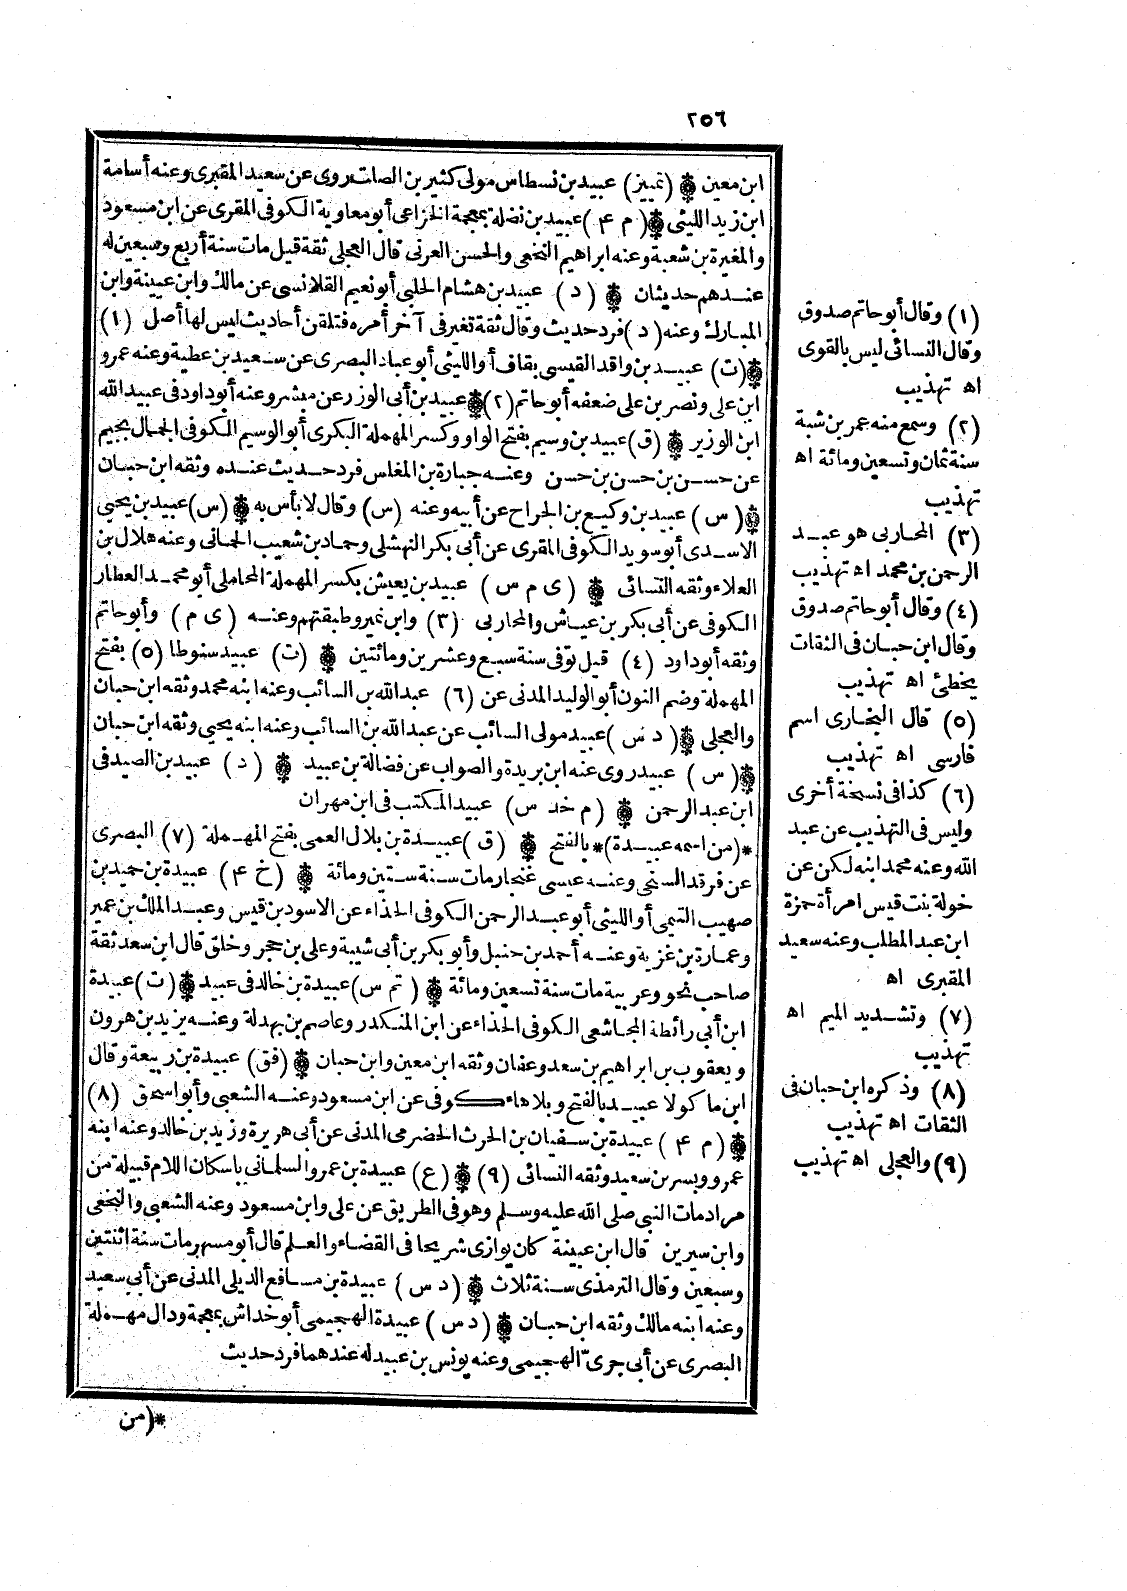 ٢٥٦
ابن معين ۞ (تمييز) عبيد بن نسطاس مولى كثير بن الصلت روى عن سعيد المقبرى وعنه أسامة
ابن زيد الليثى ۞ (م ٤) عبيد بن نضلة بمعجمة الخزاعى أبو معاوية الكوفى المقرى عن ابن مسعود
والمغيرة بن شعبة وعنه ابراهيم النخعى والحسن العرنى قال العجلى ثقة قيل مات سنة أربع وسبعين له
عندهم حديثان ۞ (د) عبيد بن هشام الحلبى أبو نعيم القلانسى عن مالك وابن عيينة وابن
المبارك وعنه (د) فرد حديث وقال ثقة تغير فى آخر أمره فتلقن أحاديث ليس لها أصل (١)
۞ (ت) عبيد بن واقد القيسى بقاف أو الليثى أبو عباد البصرى عن سعيد بن عطية وعنه عمرو
ابن على ونصر بن على ضعفه أبو حاتم (٢) ۞ عبيد بن أبى الوزر عن مبشر وعنه أبو داود فى عبيد الله
ابن الوزير ۞ (ق) عبيد بن وسيم بفتح الواو وكسر المهملة البكرى أبو الوسيم الكوفى الجمال بجيم
عن حسن بن حسن بن حسن وعنه جبارة بن المغلس فرد حديث عنده وثقه ابن حبان
۞ (س) عبيد بن وكيع بن الجراح عن أبيه وعنه (س) وقال لا بأس به ۞ (س) عبيد بن يحيى
الاسدى أبو سويد الكوفى المقرى عن أبى بكر النهشلى وحماد بن شعيب الحمانى وعنه هلال بن
العلاء وثقه النسائى ۞ (ى م س) عبيد بن يعيش بكسر المهملة المحاملى أبو محمد العطار
الكوفى عن أبى بكر بن عياش والمحاربى (٣) وابن نمير وطبقتهم وعنه (ى م) وأبو حاتم
وثقه أبو داود (٤) قيل توفى سنة سبع وعشرين ومائتين ۞ (ت) عبيد سنوطا (٥) بفتح
المهملة وضم النون أبو الوليد المدنى عن (٦) عبد الله بن السائب وعنه ابنه محمد وثقه ابن حبان
والعجلى ۞ (د س) عبيد مولى السائب عن عبد الله بن السائب وعنه ابنه يحيى وثقه ابن حبان
۞ (س) عبيد روى عنه ابن بريدة والصواب عن فضالة بن عبيد ۞ (د) عبيد بن الصيد فى
ابن عبد الرحمن ۞ (م خد س) عبيد المكتب فى ابن مهران
*(من اسمه عبيدة)* بالفتح ۞ (ق) عبيدة بن بلال العمى بفتح المهملة (٧) البصرى
عن فرقد السبخى وعنه عيسى غنجار مات سنة ستين ومائة ۞ (خ ٤) عبيدة بن حميد بن
صهيب التيمى أو الليثى أبو عبد الرحمن الكوفى الحذاء عن الاسود بن قيس وعبد الملك بن عمير
وعمارة بن غزية وعنه أحمد بن حنبل وأبو بكر بن أبى شيبة وعلى بن حجر وخلق قال ابن سعد ثقة
صاحب نحو وعربية مات سنة تسعين ومائة ۞ (تم س) عبيدة بن خالد فى عبيد ۞ (ت) عبيدة
ابن أبى رائطة المجاشعى الكوفى الحذاء عن ابن المنكدر وعاصم بن بهدلة وعنه يزيد بن هرون
ويعقوب بن ابراهيم بن سعد وعفان وثقه ابن معين وابن حبان ۞ (فق) عبيدة بن ربيعة وقال
ابن ماكولا عبيد بالفتح وبلا هاء كوفى عن ابن مسعود وعنه الشعبى وأبو اسحق (٨)
۞ (م ٤) عبيدة بن سفيان بن الحرث الحضرمى المدنى عن أبى هريرة وزيد بن خالد وعنه ابنه
عمرو وبسر بن سعيد وثقه النسائى (٩) ۞ (ع) عبيدة بن عمرو السلمانى باسكان اللام قبيلة من
مراد مات النبى صلى الله عليه وسلم وهو فى الطريق عن على وابن مسعود وعنه الشعبى والنخعى
وابن سيرين قال ابن عيينة كان يوازى شريحا فى القضاء والعلم قال أبو مسهر مات سنة اثنتين
وسبعين وقال الترمذى سنة ثلاث ۞ (د س) عبيدة بن مسافع الديلى المدنى عن أبى سعيد
وعنه ابنه مالك وثقه ابن حبان ۞ (د س) عبيدة الهجيمى أبو خداش بمعجمة ودال مهملة
البصرى عن أبى جرى الهجيمى وعنه يونس بن عبيد له عندهما فرد حديث
*(من
(١) وقال أبو حاتم صدوق
وقال النسائى ليس بالقوى
اه تهذيب
(٢) وسمع منه عمر بن شبة
سنة ثمان وتسعين ومائة اه
تهذيب
(٣) المحاربى هو عبد
الرحمن بن محمد اه تهذيب
(٤) وقال أبو حاتم صدوق
وقال ابن حبان فى الثقات
يخطئ اه تهذيب
(٥) قال البخارى اسم
فارسى اه تهذيب
(٦) كذا فى نسخة أخرى
وليس فى التهذيب عن عبد
الله وعنه محمد ابنه لكن عن
خولة بنت قيس امرأة حمزة
ابن عبد المطلب وعنه سعيد
المقبرى اه
(٧) وتشديد الميم اه
تهذيب
(٨) وذكره ابن حبان فى
الثقات اه تهذيب
(٩) والعجلى اه تهذيب